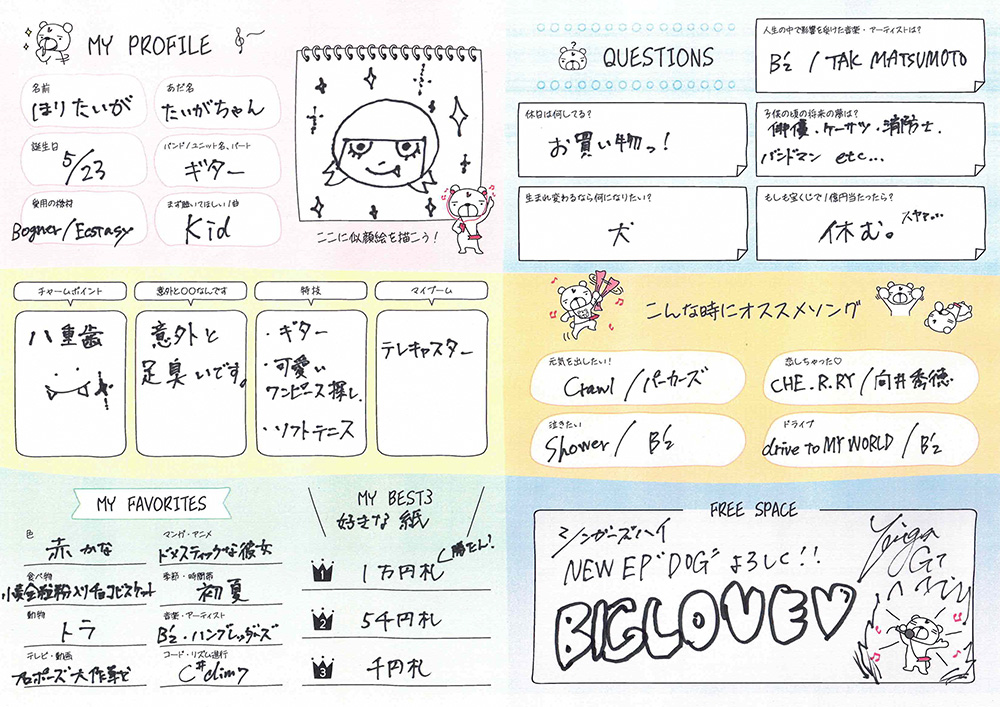 MY PROFILE
名前
ほり たいが
あだ名
たいがちゃん
誕生日
5/23
バンド/ユニット名、パート
ギター
愛用の機材
Bogner/Ecstasy
まず聴いてほしい1曲
Kid
ここに似顔絵を描こう!
QUESTIONS
人生の中で影響を受けた音楽・アーティストは?
B'z / TAK MATSUMOTO
休日は何してる?
お買い物っ!
子供の頃の将来の夢は?
俳優・ケーサツ・消防士・
バンドマン etc...
生まれ変わるなら何になりたい?
犬
もしも宝くじで1億円当たったら?
休む。
チャームポイント
八重歯
意外と〇〇なんです
意外と
足臭いです。
特技
・ギター
・可愛い
ワンピース探し
・ソフトテニス
マイブーム
テレキャスター
こんな時にオススメソング
元気を出したい!
Crawl/パーカーズ
恋しちゃった♡
CHE.R.RY/向井秀徳
泣きたい
Shower/ B'z
ドライブ
drive to MY WORLD/B'z
MY FAVORITES
色
赤かな
マンガ・アニメ
ドメスティックな彼女
食べ物
小麦全粒粉入りチョコビスケット
季節・時間帯
初夏
動物
トラ
音楽・アーティスト
B'z・ハンブレッダーズ
テレビ・動画
プロポーズ大作戦など
コード・リズム進行
C#dim7
MY BEST3
好きな 紙
勝たん!
1 1万円札
2 5千円札
3 千円札
FREE SPACE
シンガーズハイ
NEW EP "DOG" よろしく!!
BIG LOVE♡
Taiga
GT